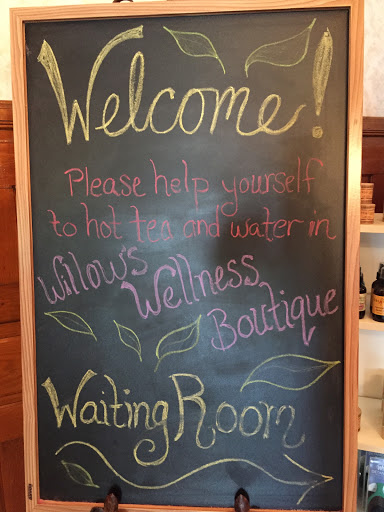 Welcome!
Please help yourself
to hot tea and water in
Willow's
Wellness
Boutique
Waiting Room